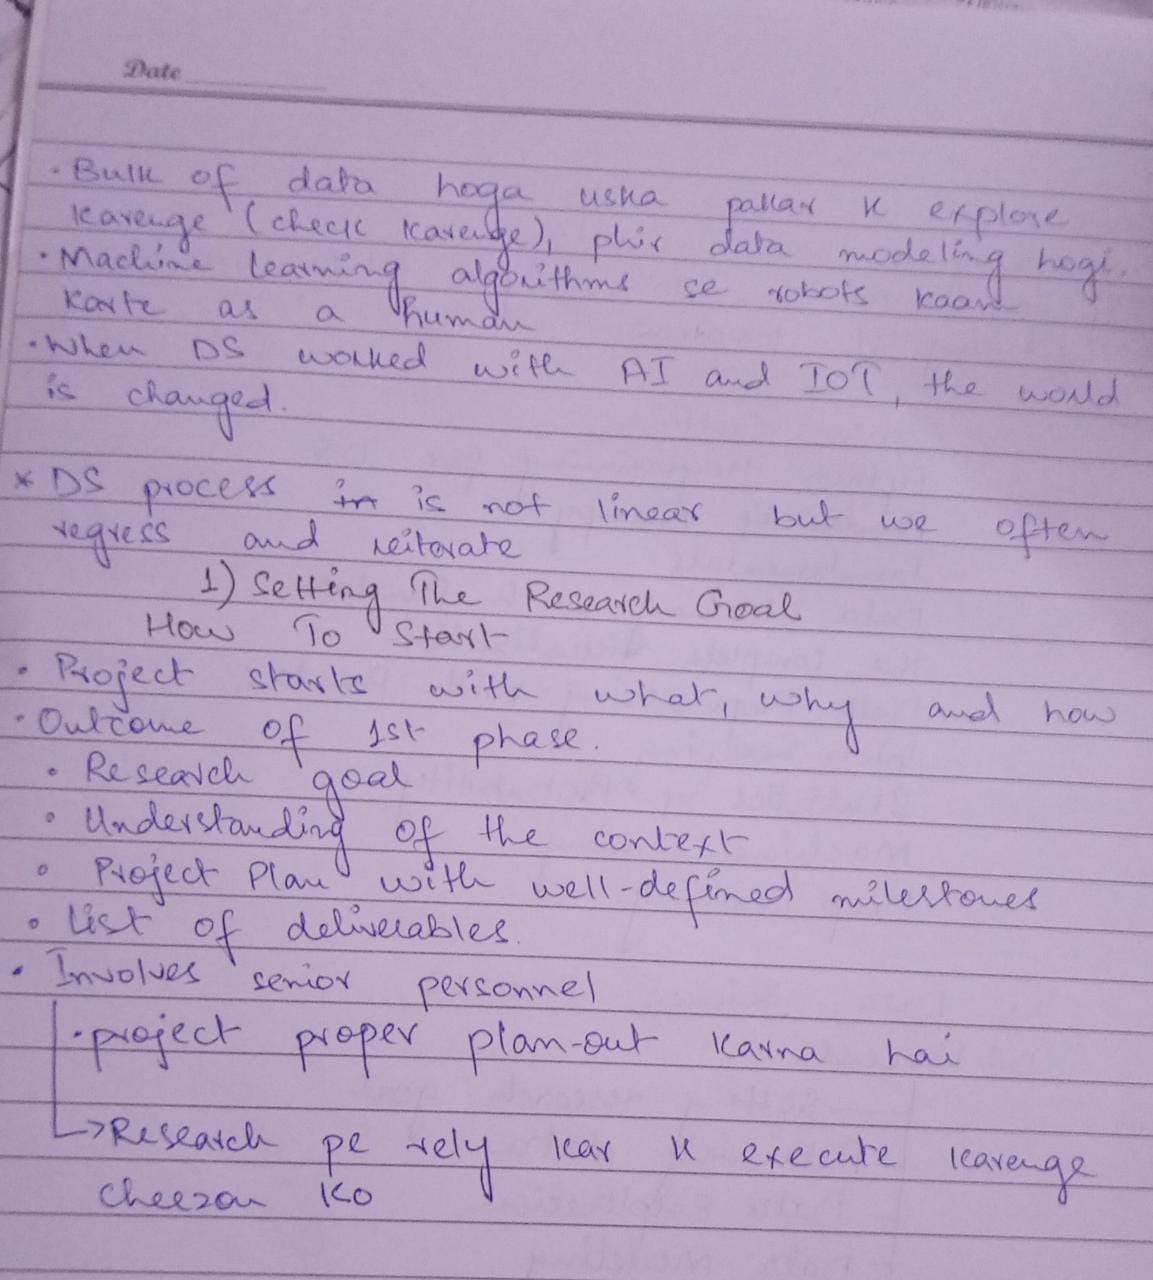 Date
· Bulk of data hoga uska pakar k explore
karenge (check karenge), phir data modeling hogi.
· Machine learning algorithms se robots kaam
karte as a human
· When DS worked with AI and IOT, the world
is changed.
* DS process in is not linear but we often
regress and reiterate
1) Setting The Research Goal
How To Start
· Project starts with what, why and how
· Outcome of 1st phase.
· Research goal
· Understanding of the context
· Project Plan with well-defined milestones
· List of deliverables.
· Involves senior personnel
· project proper plan-out karna hai
→ Research pe rely kar k execute karenge
cheezon ko